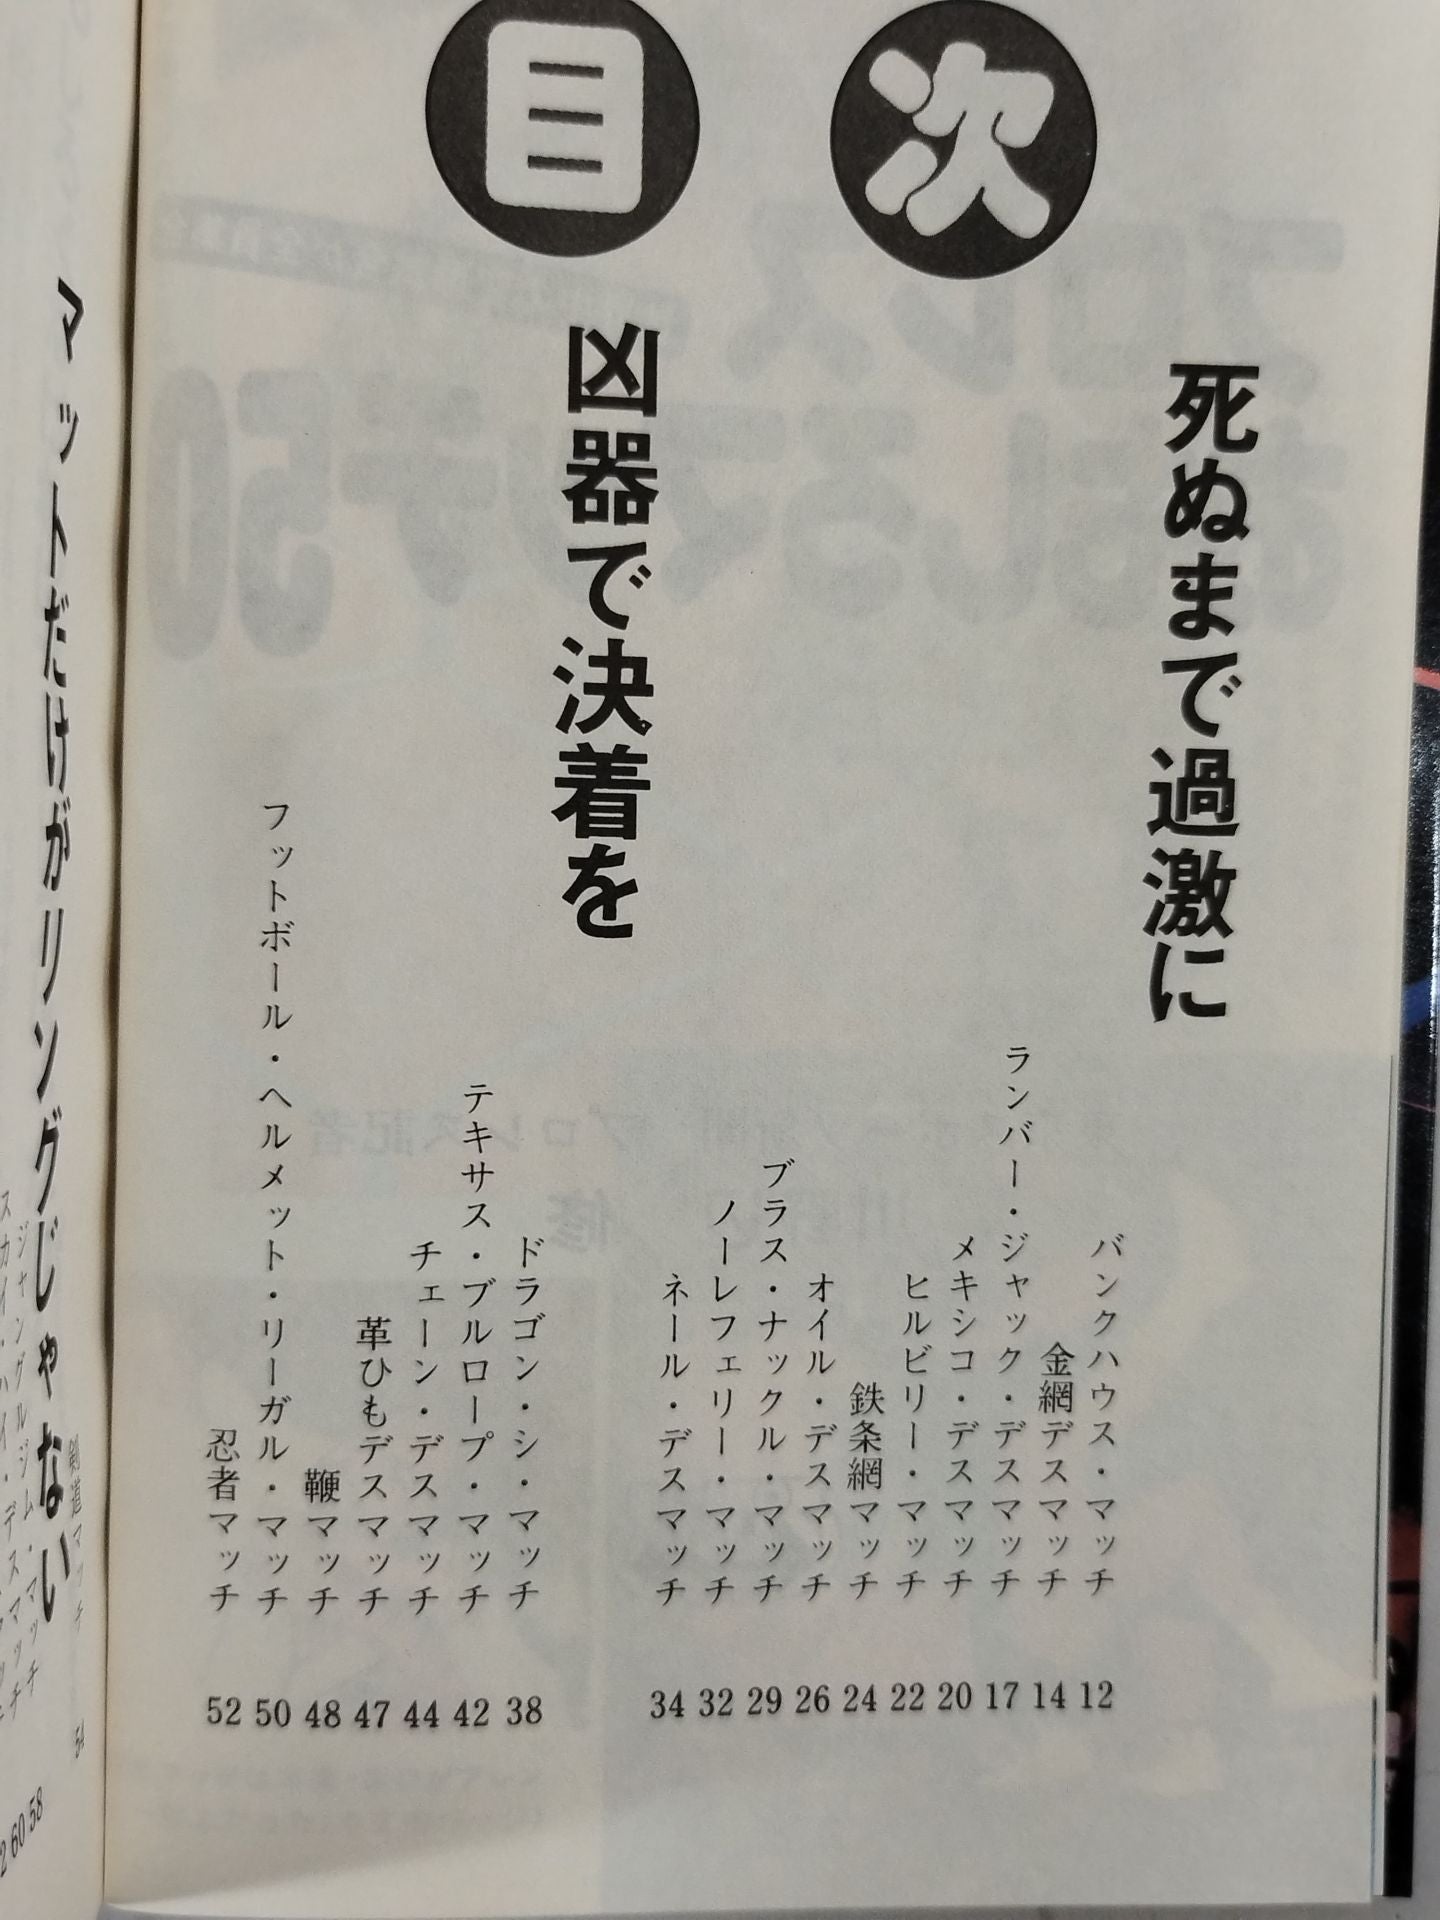 目次
死ぬまで過激に
バンクハウス・マッチ 12
金網デスマッチ 14
ランバー・ジャック・デスマッチ 17
メキシコ・デスマッチ 20
ヒルビリー・マッチ 22
鉄条網マッチ 24
オイル・デスマッチ 26
ブラス・ナックル・マッチ 29
ノーレフェリー・マッチ 32
ネール・デスマッチ 34
凶器で決着を
ドラゴン・シ・マッチ 38
テキサス・ブルロープ・マッチ 42
チェーン・デスマッチ 44
革ひもデスマッチ 47
鞭マッチ 48
フットボール・ヘルメット・リーガル・マッチ 50
忍者マッチ 52
マットだけがリングじゃない
剣道マッチ 54
ジャングルジム・マッチ 58